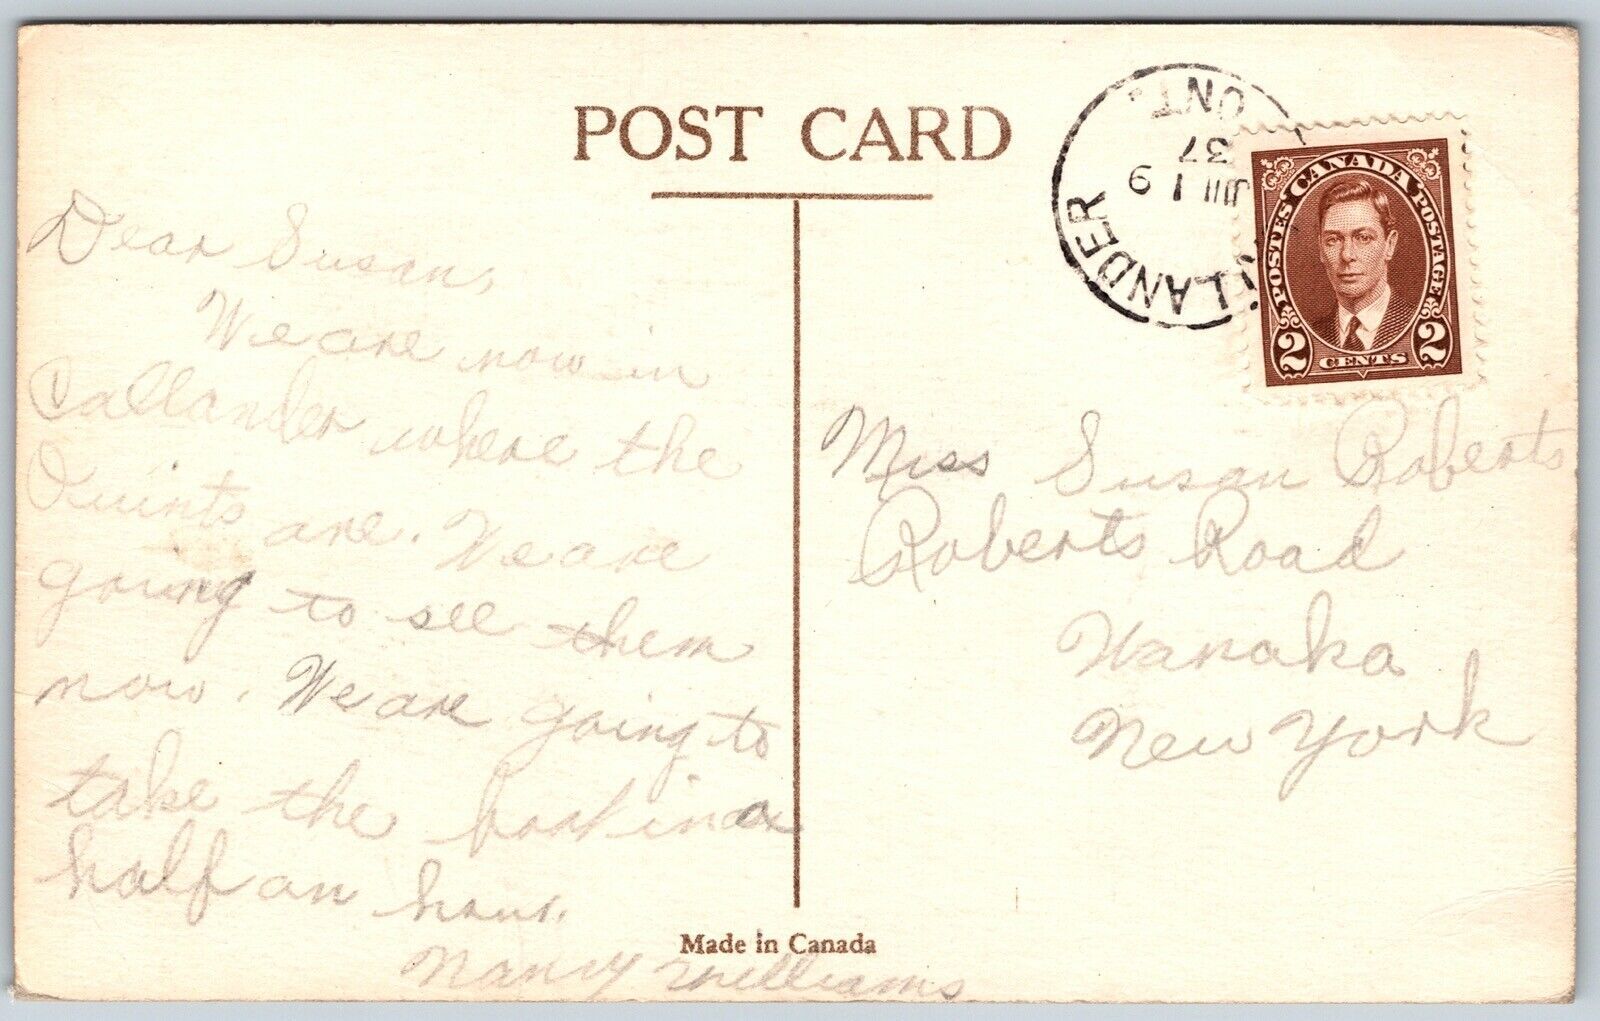 POST CARD
CALLANDER
ONT.
JUL 19
37
POSTES CANADA POSTAGE
2 CENTS 2
Dear Susan,
We are now in
Callander where the
Quints are. We are
going to see them
now. We are going to
take the boat in a
half an hour.
Nancy Williams
Miss Susan Roberts
Roberts Road
Wanaka
New York
Made in Canada